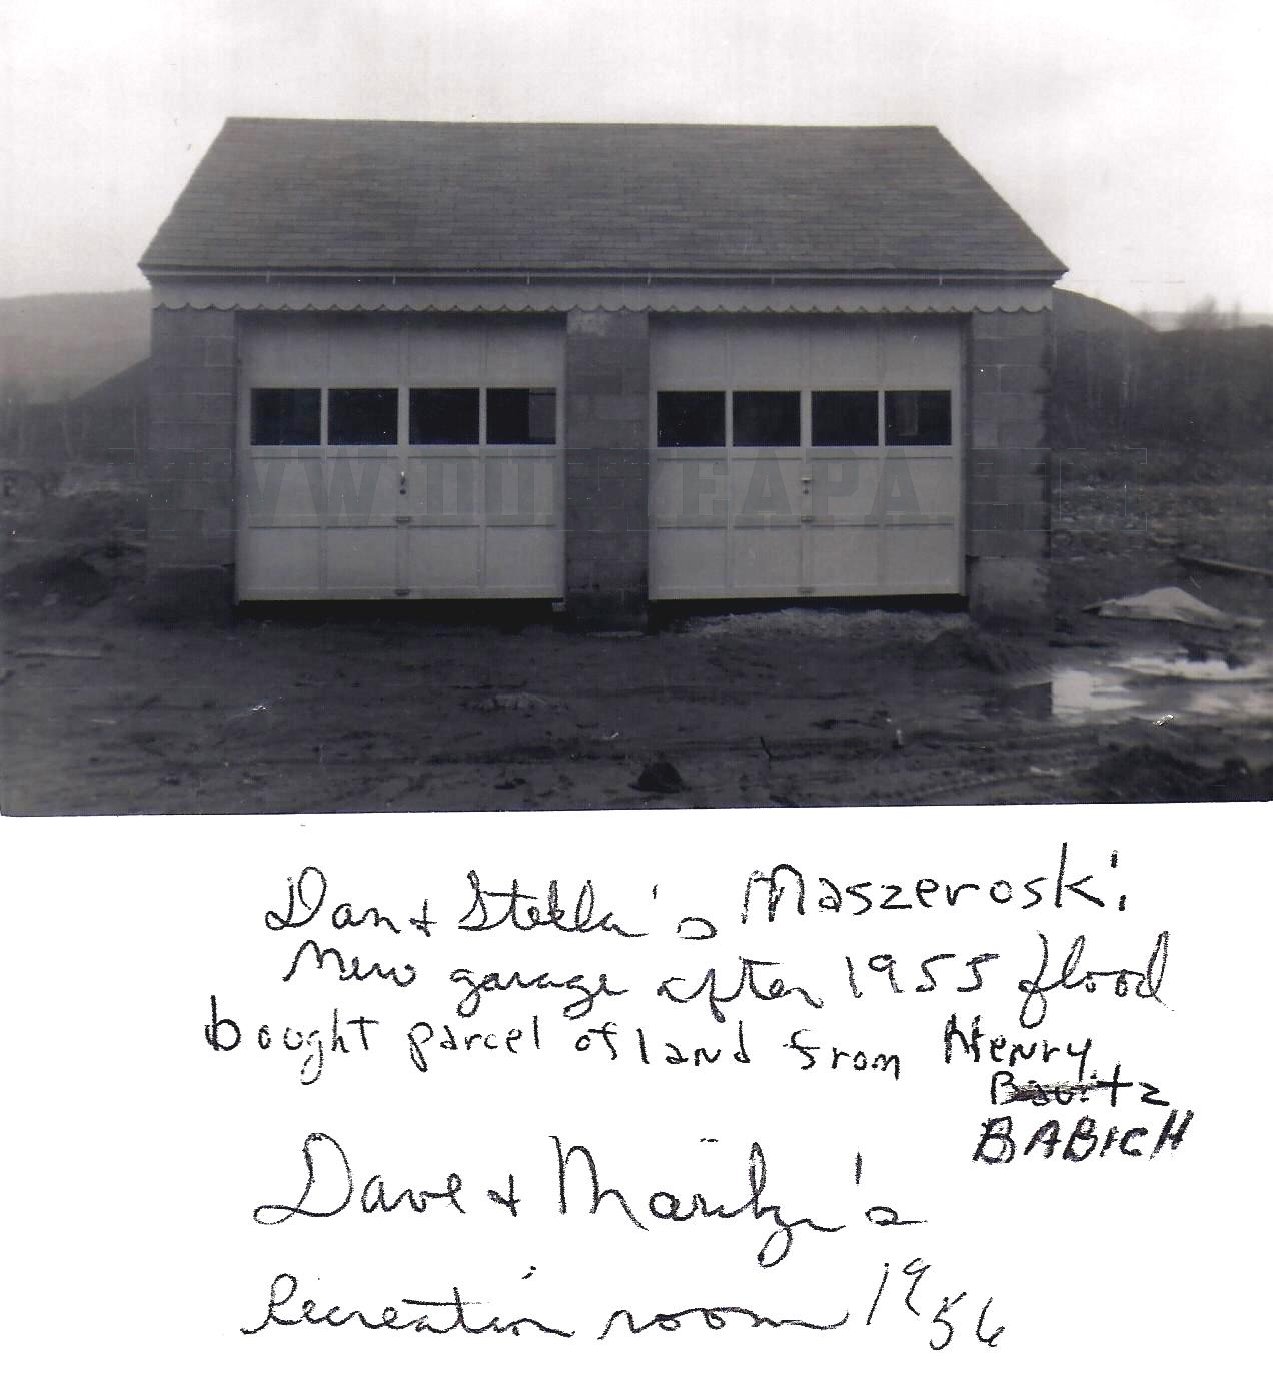 Dan + Stella's Maszeroski
New garage after 1955 flood
bought parcel of land from Henry
BABICH
Dave + Marilyn's
Recreation room 1956